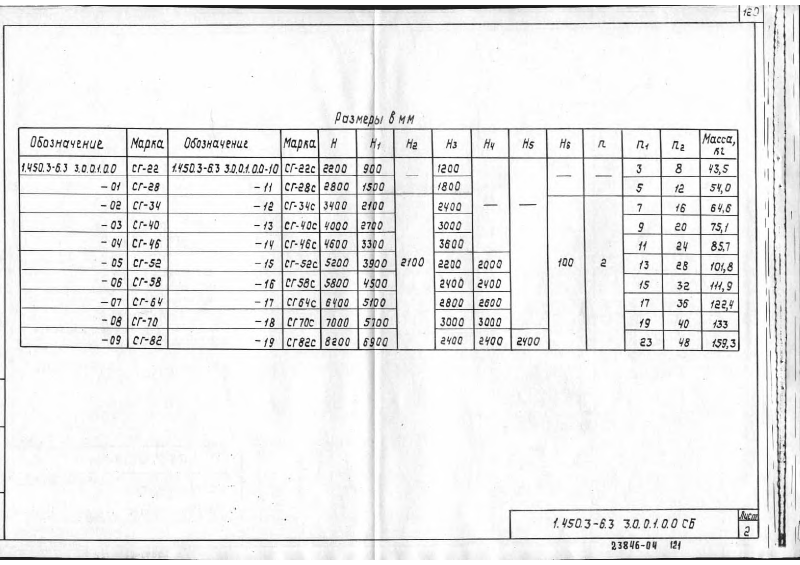 120
Размеры в мм
Обозначение Марка Обозначение Марка H H1 H2 H3 H4 H5 H6 n n1 n2 Масса, кг
1.450.3-6.3 3.0.0.1.0.0 СГ-22 1.450.3-6.3 3.0.0.1.0.0-10 СГ-22с 2200 900 — 1200 — — — — 3 8 43,5
-01 СГ-28 -11 СГ-28с 2800 1500 1800 5 12 54,0
-02 СГ-34 -12 СГ-34с 3400 2100 2100 2400 100 2 7 16 64,6
-03 СГ-40 -13 СГ-40с 4000 2700 3000 9 20 75,1
-04 СГ-46 -14 СГ-46с 4600 3300 3600 11 24 85,7
-05 СГ-52 -15 СГ-52с 5200 3900 2200 2000 13 28 101,8
-06 СГ-58 -16 СГ58с 5800 4500 2400 2400 15 32 111,9
-07 СГ-64 -17 СГ64с 6400 5100 2800 2600 17 36 122,4
-08 СГ-70 -18 СГ70с 7000 5700 3000 3000 19 40 133
-09 СГ-82 -19 СГ82с 8200 6900 2400 2400 2400 23 48 159,3
1.450.3-6.3 3.0.0.1.0.0 СБ
Лист
2
23846-04 121